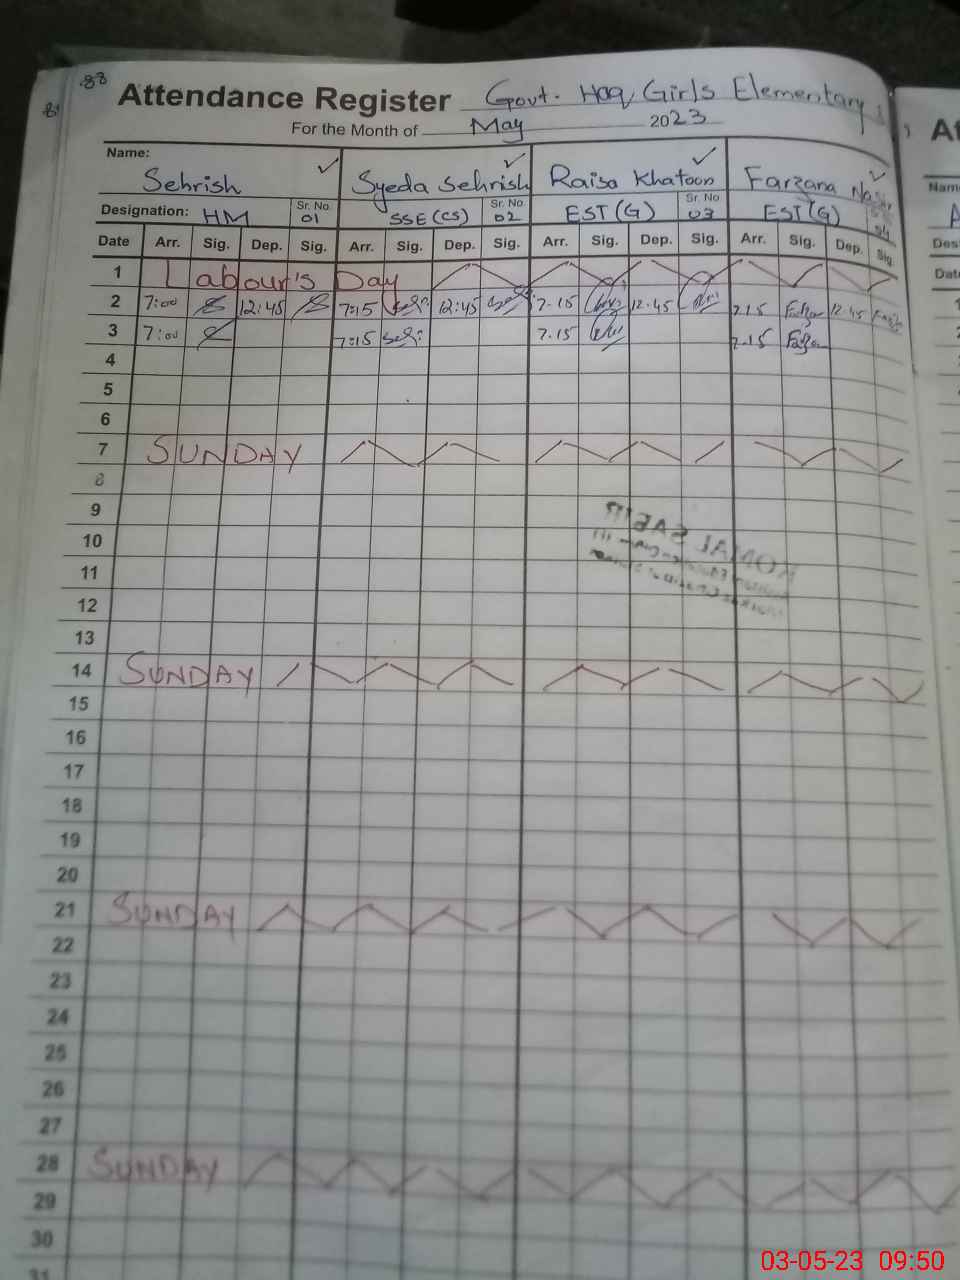 88
Attendance Register Govt. Haq Girls Elementary
For the Month of May 2023
Name: Sehrish Syeda Sehrish Raisa Khatoon Farzana Nasir
Designation: HM Sr. No. 01 SSE (CS) Sr. No. 02 EST (G) Sr. No. 03 EST (G) 04
Date Arr. Sig. Dep. Sig. Arr. Sig. Dep. Sig. Arr. Sig. Dep. Sig. Arr. Sig. Dep. Sig.
1 Labour's Day
2 7:00 12:45 7:15 12:45 7.15 12.45 7.15 12.45
3 7:00 7:15 7.15 7.15
4
5
6
7 SUNDAY
8
9
10
11
12
13
14 SUNDAY
15
16
17
18
19
20
21 SUNDAY
22
23
24
25
26
27
28 SUNDAY
29
30
31
03-05-23 09:50